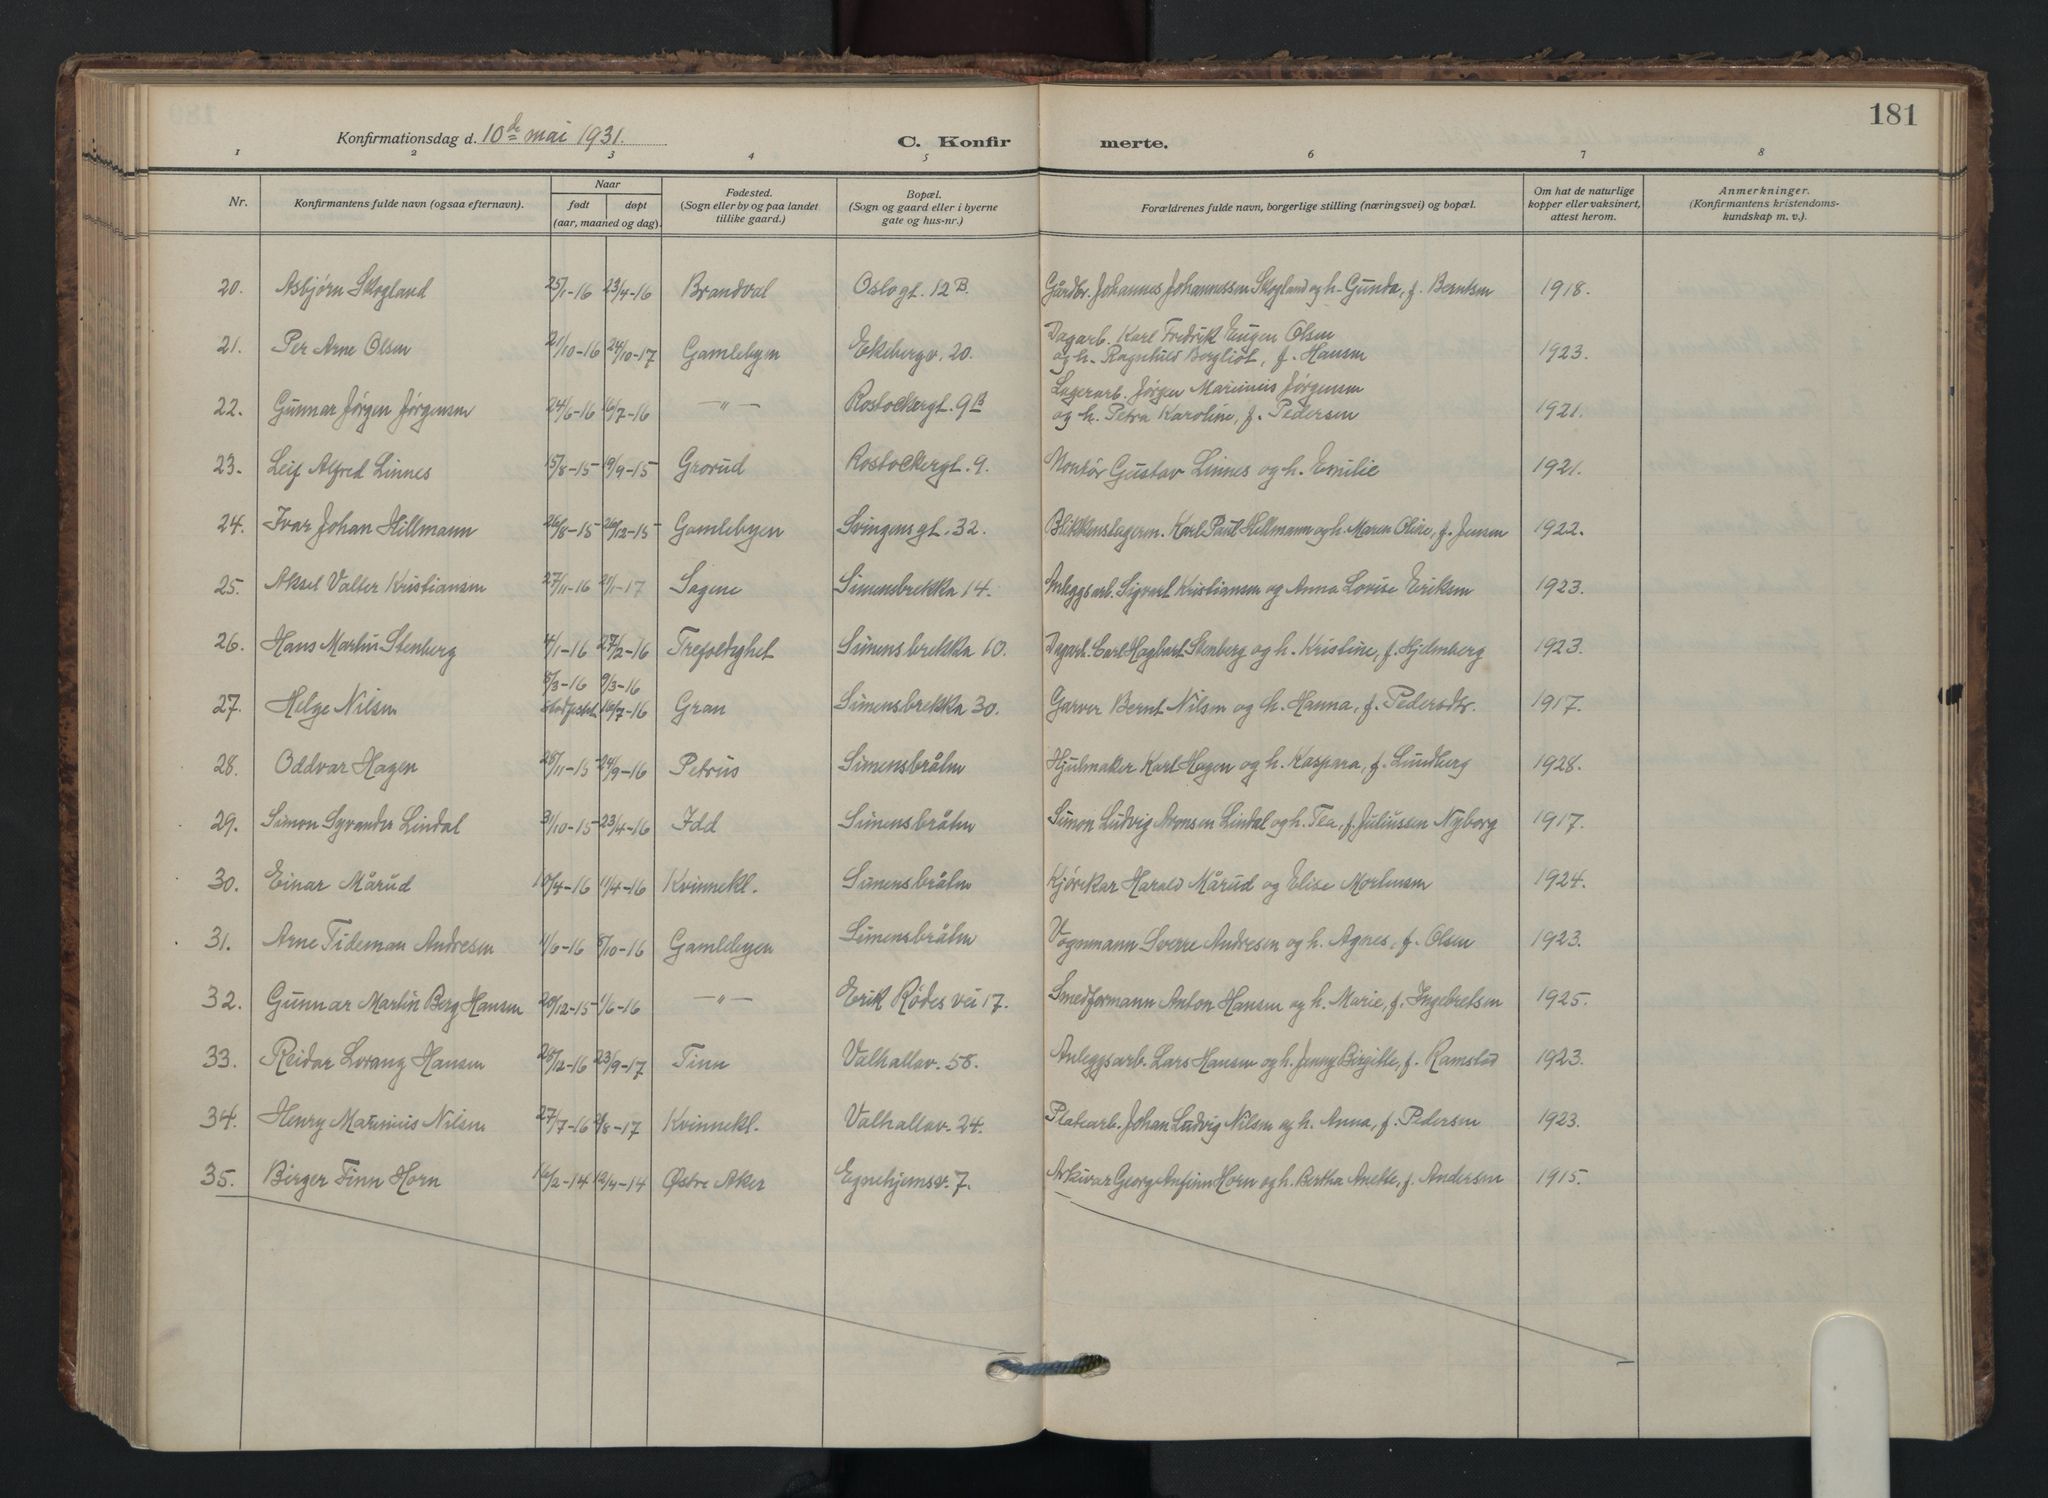 181
Konfirmationsdag d. 10de mai 1931.
C. Konfirmerte.
1 2 3 4 5 6 7 8
Nr.
Konfirmantens fulde navn (ogsaa efternavn).
Naar
født døpt
(aar, maaned og dag).
Fødested.
(Sogn eller by og paa landet
tillike gaard.)
Bopæl.
(Sogn og gaard eller i byerne
gate og hus-nr.)
Forældrenes fulde navn, borgerlige stilling (næringsvei) og bopæl.
Om hat de naturlige
kopper eller vaksinert,
attest herom.
Anmerkninger.
(Konfirmantens kristendoms-
kundskap m. v.)
20. Asbjørn Skogland 25/1-16 23/4-16 Brandval Oslogt. 12B. Gårdbr. Johannes Johannessen Skogland og h. Gunda, f. Berntsen 1918.
21. Per Arne Olsen 21/10-16 24/10-17 Gamlebyen Ekebergv. 20. Dagarb. Karl Fredrik Eugen Olsen
og h. Ragnhild Bergliot, f. Hansen 1923.
22. Gunnar Jørgen Jørgensen 24/6-16 16/7-16 —"— Rostockergt. 9B Lagerarb. Jørgen Marinius Jørgensen
og h. Petra Karoline, f. Pedersen 1921.
23. Leif Alfred Linnes 15/8-15 19/9-15 Grorud Rostockergt. 9. Montør Gustav Linnes og h. Emilie 1921.
24. Ivar Johan Hillmann 26/8-15 26/12-15 Gamlebyen Svingensgt. 32. Blikkenslagerm. Karl Paul Hillmann og h. Maren Oline, f. Jensen 1922.
25. Aksel Valter Kristiansen 27/11-16 21/1-17 Sagene Simensbrekka 14. Anleggsarb. Sigvart Kristiansen og Anna Lovise Eriksen 1923.
26. Hans Martin Stenberg 4/1-16 27/2-16 Trefoldighet Simensbrekka 10. Dagarb. Carl Hagbart Stenberg og h. Kristine, f. Hjelmberg 1923.
27. Helge Nilsen 8/3-16 9/3-16
Stadfestet 16/7-16 Gran Simensbrekka 30. Garver Bernt Nilsen og h. Hanna, f. Pedersdtr. 1917.
28. Oddvar Hagen 28/11-15 24/9-16 Petrus Simensbråtn Hjulmaker Karl Hagen og h. Kaspara, f. Lundberg 1928.
29. Simon Syvander Lindal 31/10-15 23/4-16 Idd Simensbråtn Simon Ludvig Aronsen Lindal og h. Tea, f. Juliussen Nyborg 1917.
30. Einar Mårud 10/4-16 11/4-16 Kvinnekl. Simensbråtn Kjørekar Harald Mårud og Elise Mortensen 1924.
31. Arne Tideman Andresen 11/6-16 8/10-16 Gamlebyen Simensbråtn Vognmann Sverre Andresen og h. Agnes, f. Olsen 1923.
32. Gunnar Martin Berg Hansen 20/12-15 1/6-16 —"— Erik Rødes vei 17. Smedformann Anton Hansen og h. Marie, f. Ingebretsen 1925.
33. Reidar Lorang Hansen 28/12-16 23/9-17 Tinn Valhallav. 58. Anleggsarb. Lars Hansen og h. Jenny Birgitte, f. Ramstad 1923.
34. Henry Marinius Nilsen 27/7-16 /8-17 Kvinnekl. Valhallav. 24. Platearb. Johan Ludvig Nilsen og h. Anna, f. Pedersen 1923.
35. Birger Finn Horn 16/2-14 12/4-14 Østre Aker Egnehjemsv. 7. Arkivar Georg Anfinn Horn og h. Bertha Anette, f. Andersen 1915.